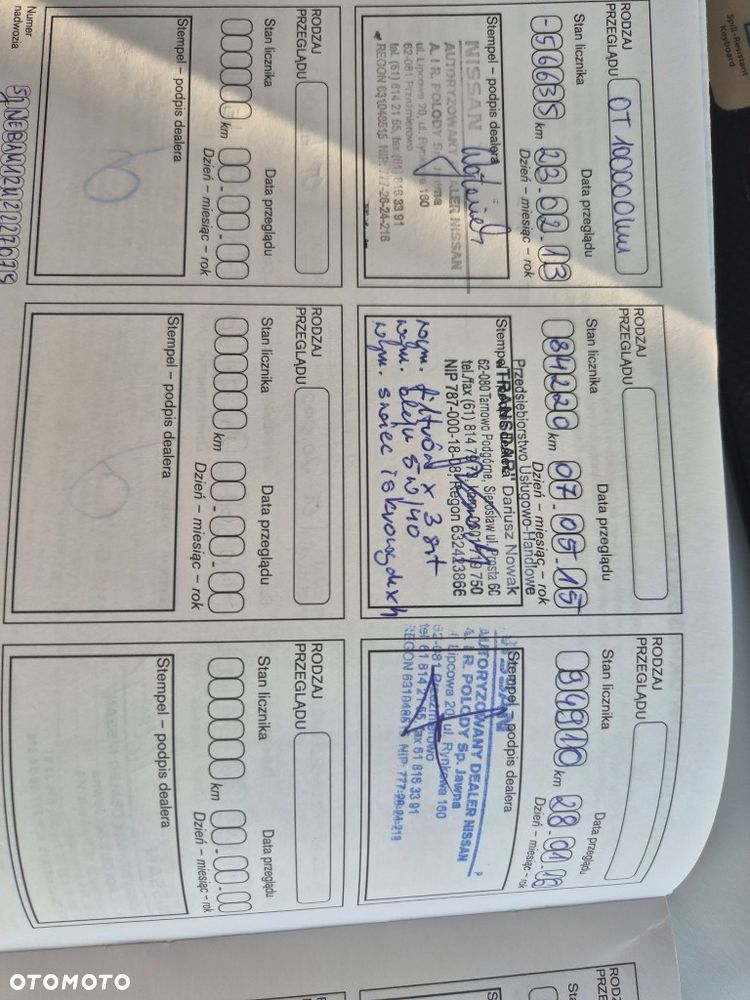 RODZAJ
PRZEGLĄDU
OT 100000km
Stan licznika
Data przeglądu
-56635 km 23.02.13
Dzień – miesiąc – rok
Stempel – podpis dealera
NISSAN
AUTORYZOWANY DEALER NISSAN
A. I R. POLODY Sp. Jawna
ul. Lipcowa 20, ul. Rynkowa 160
62-081 Przeźmierowo
tel. (61) 814 21 55, fax (61) 816 33 91
REGON 631046515 NIP: 777-26-24-218
RODZAJ
PRZEGLĄDU
Stan licznika
Data przeglądu
84220 km 07.05.15
Dzień – miesiąc – rok
Przedsiębiorstwo Usługowo-Handlowe
"TRANSDAR" Dariusz Nowak
Stempel – podpis dealera
62-080 Tarnowo Podgórne, Sierosław ul. Prosta 60
tel./fax (61) 814 7973,
NIP 787-000-18-08, Regon 632423866
wym. filtrów x 3 szt
wym. oleju 5W/40
wym. świec iskrowych x 4
RODZAJ
PRZEGLĄDU
Stan licznika
Data przeglądu
94910 km 28.01.16
Dzień – miesiąc – rok
Stempel – podpis dealera
NISSAN
AUTORYZOWANY DEALER NISSAN
A. I R. POLODY Sp. Jawna
ul. Lipcowa 20, ul. Rynkowa 160
62-081 Przeźmierowo
tel. 61 814 21 55, fax 61 816 33 91
NIP: 777-26-24-218
RODZAJ
PRZEGLĄDU
Stan licznika
Data przeglądu
000000 km 00.00.00
Dzień – miesiąc – rok
Stempel – podpis dealera
RODZAJ
PRZEGLĄDU
Stan licznika
Data przeglądu
000000 km 00.00.00
Dzień – miesiąc – rok
Stempel – podpis dealera
RODZAJ
PRZEGLĄDU
Stan licznika
Data przeglądu
000000 km 00.00.00
Dzień – miesiąc – rok
Stempel – podpis dealera
Numer
nadwozia
Spill-Resistant
Keyboard
RODZAJ
PRZE
Sta
RODZ
PRZE
OTOMOTO